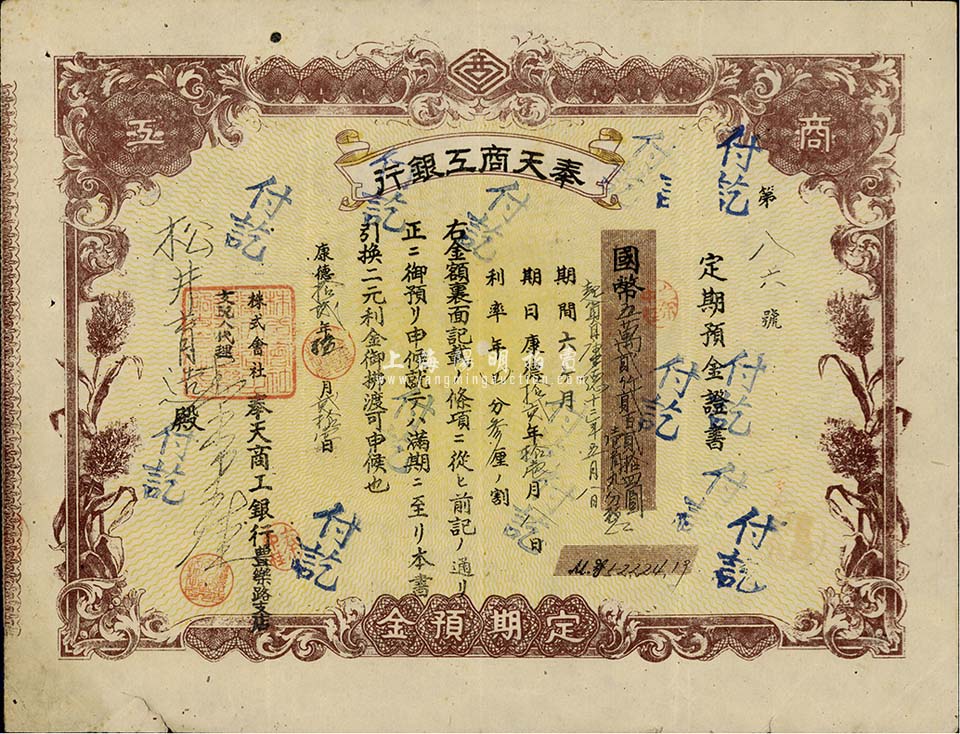 商
工
奉天商工銀行
第八六號
定期預金證書
國幣五萬貳仟貳百貳拾四圓
壹角九分
M.¥52224.19
期間六ヶ月
期日康德拾貳年拾壹月一日
利率年 分参厘ノ割
右金額裏面記載ノ條項ニ從ヒ前記ノ通リ
正ニ御預リ申候就テハ滿期ニ至リ本書
引換ニ元利金御拂渡可申候也
康德拾貳年 月 日
株式會社奉天商工銀行豐樂路支店
支配人代理
松井 殿
付訖
付訖
付訖
付訖
付訖
付訖
付訖
付訖
付訖
定期預金
上海陽明拍賣
www.yangmingauction.com